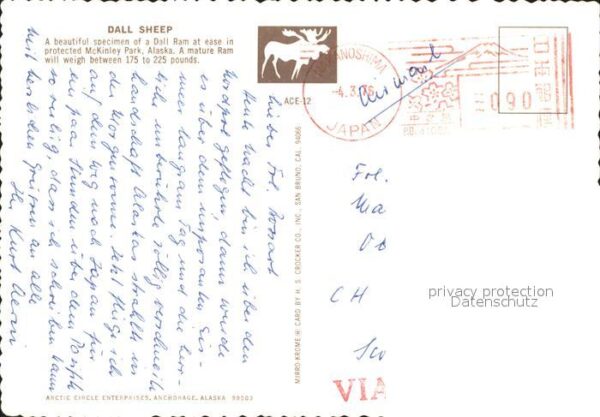 DALL SHEEP
A beautiful specimen of a Dall Ram at ease in
protected McKinley Park, Alaska. A mature Ram
will weigh between 175 to 225 pounds.
ACE-12
NAKANOSHIMA
-4.3.76
JAPAN
090
Liebe Frl.
Heute Nacht bin ich über den
Nordpol geflogen, dann wurde
es über dem
langsam Tag und die
unberührte völlig verschneite
Landschaft Alaskas strahlte in
der Morgensonne. Jetzt fliege ich
auf dem Weg nach Japan für
Stunden über den Pazifik
so ruhig, dass ich schreiben kann
mit herzlichen Grüssen an alle
Ihr Kurt
MIRRO-KROME ® CARD BY H. S. CROCKER CO., INC., SAN BRUNO, CAL. 94066
Frl.
Ma
CH
VIA
privacy protection
Datenschutz
ARCTIC CIRCLE ENTERPRISES, ANCHORAGE, ALASKA 99503